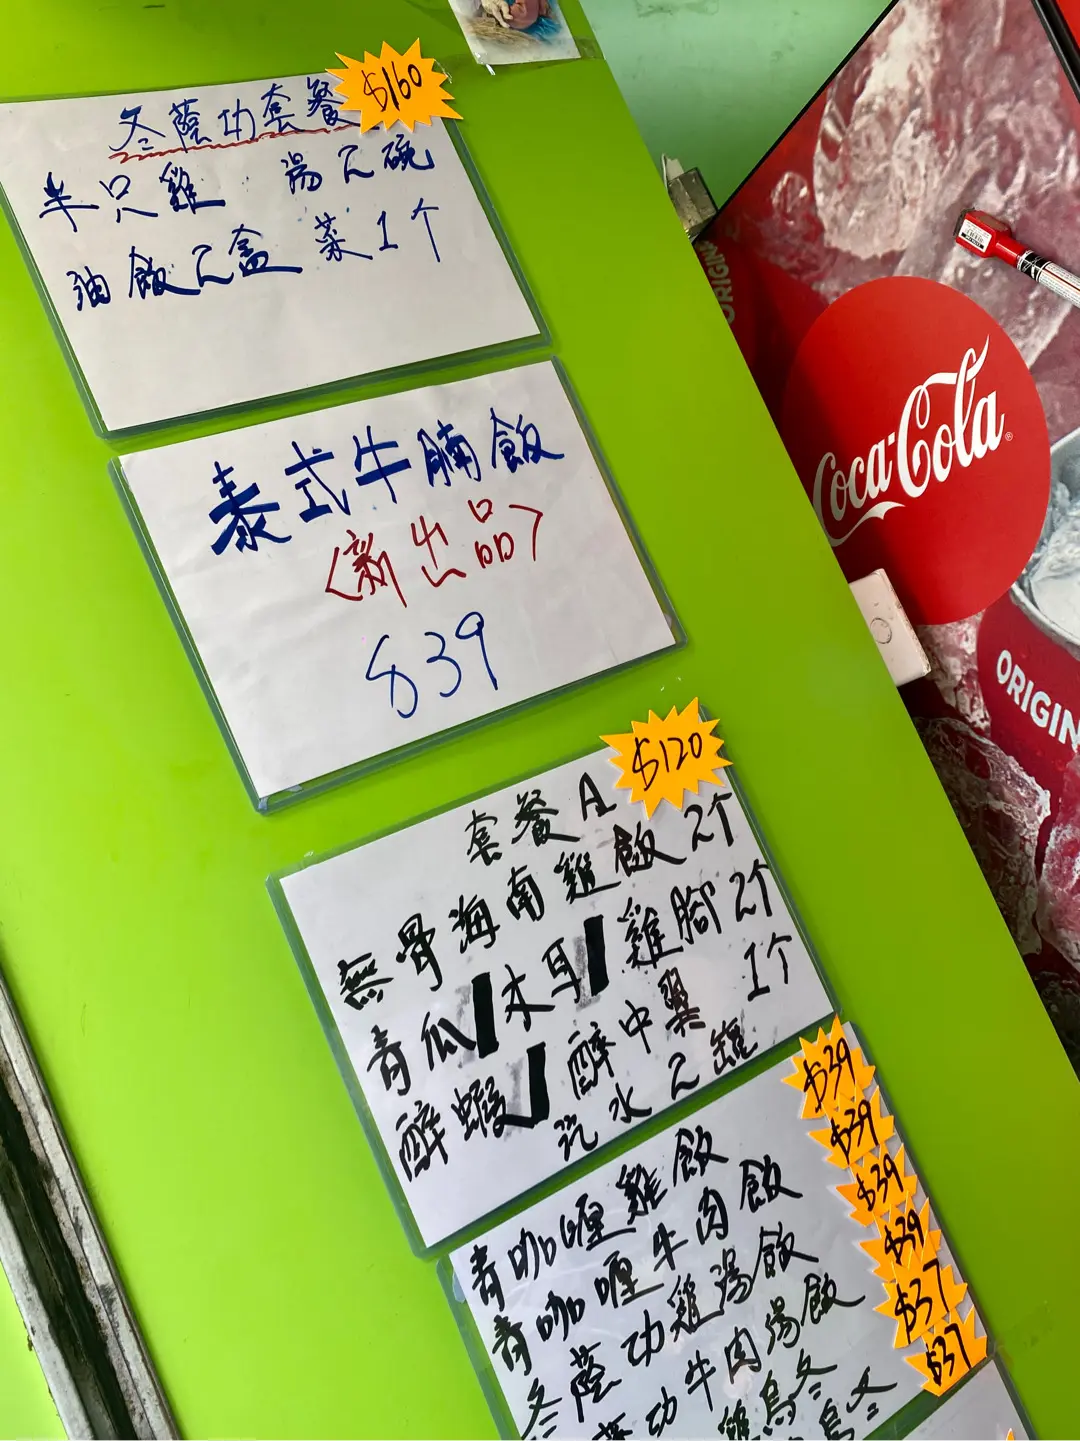 $160
冬蔭功套餐
半只雞 湯2碗
油飯2盒 菜1个
泰式牛腩飯
<新出品>
$39
$120
套餐A
無骨海南雞飯2个
青瓜/木耳/雞腳2个
醉蝦/醉中翼 1个
汽水2罐
青咖喱雞飯 $39
青咖喱牛肉飯 $39
冬蔭功雞湯飯 $39
蔭功牛肉湯飯 $39
雞烏冬 $37
烏冬 $37
Coca-Cola
ORIGIN
ORIGIN